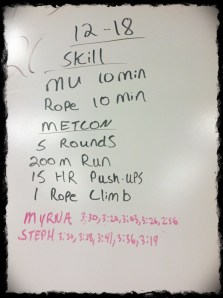 12-18
Skill
MU 10 min
Rope 10 min
METCON
5 Rounds
200m Run
15 HR Push-ups
1 Rope Climb
MYRNA 3:30, 3:20, 3:03, 3:26, 2:56
STEPH 3:30, 3:38, 3:41, 3:36, 3:19